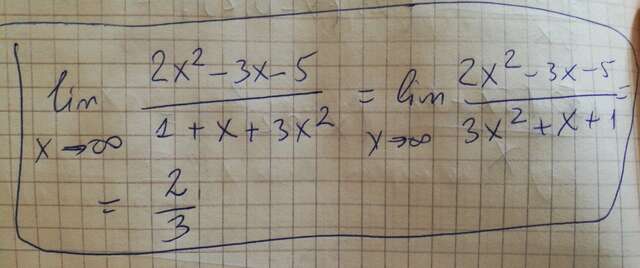 lim 2x² - 3x - 5 / 1 + x + 3x² = lim 2x² - 3x - 5 / 3x² + x + 1 =
x → ∞ x → ∞
= 2 / 3